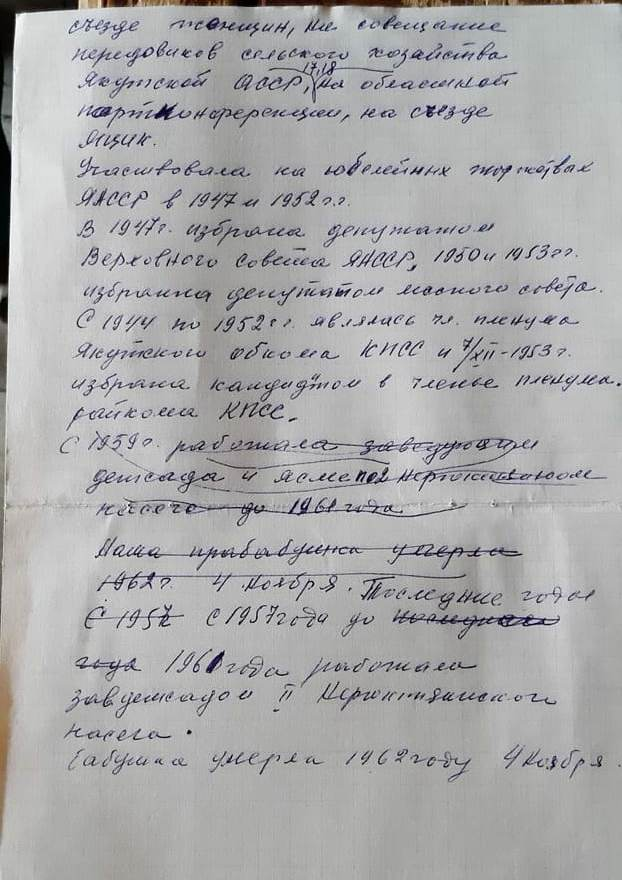 съезде женщин, на совещание
передовиков сельского хозяйства
Якутской АССР, 17,18 на областной
партконференции, на съезде
ЯЦИК.
Участвовала на юбелейных торжествах
ЯАССР в 1947 и 1952 г.г.
В 1947г. избрана депутатом
Верховного совета ЯАССР, 1950 и 1953 г.г.
избранна депутатом совета.
С 1944 по 1952 г.г. являлась чл. пленума
Якутского обкома КПСС и 7/XII-1953 г.
избрана кандидатом в члены пленума.
райкома КПСС.
С 1959 г. работала заведующим
детсада и ясме по 2 Нерюктяинском
наслеге до 1961 года.
Наша прабабушка умерла
1962 г. 4 ноября. Последние годы
С 1957 с 1957 года до последнего
года 1961 года работала
завдетсадом II Нерюктяинского
насега.
Бабушка умерла 1962 году 4 Ноября.